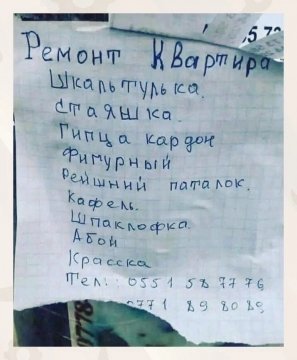 5 73
Ремонт Квартира
Шкальтулька.
стаяшка.
Гипца кардон
Фигурный
Рейшний паталок.
Кафель.
Шпаклофка.
Абой
Красска
Тел.: 0551 58 77 76
0771 89 80 89